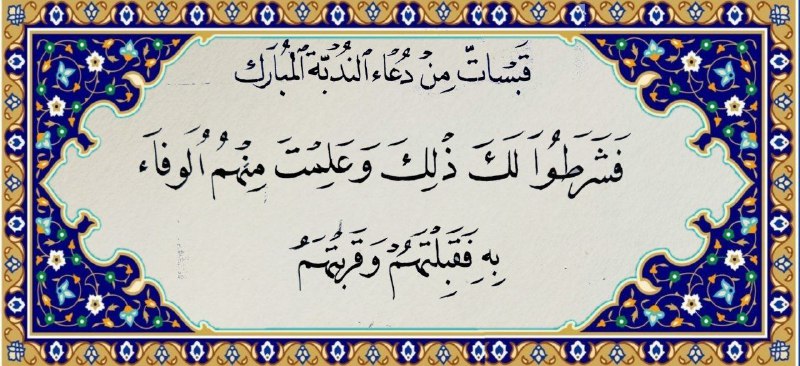 قَبَسَاتٌ مِنْ دُعَاءِ النُّدْبَةِ الْمُبَارَك
فَشَرَطُوا لَكَ ذٰلِكَ وَعَلِمْتَ مِنْهُمُ الْوَفَاءَ
بِهِ فَقَبِلْتَهُمْ وَقَرَّبْتَهُمْ